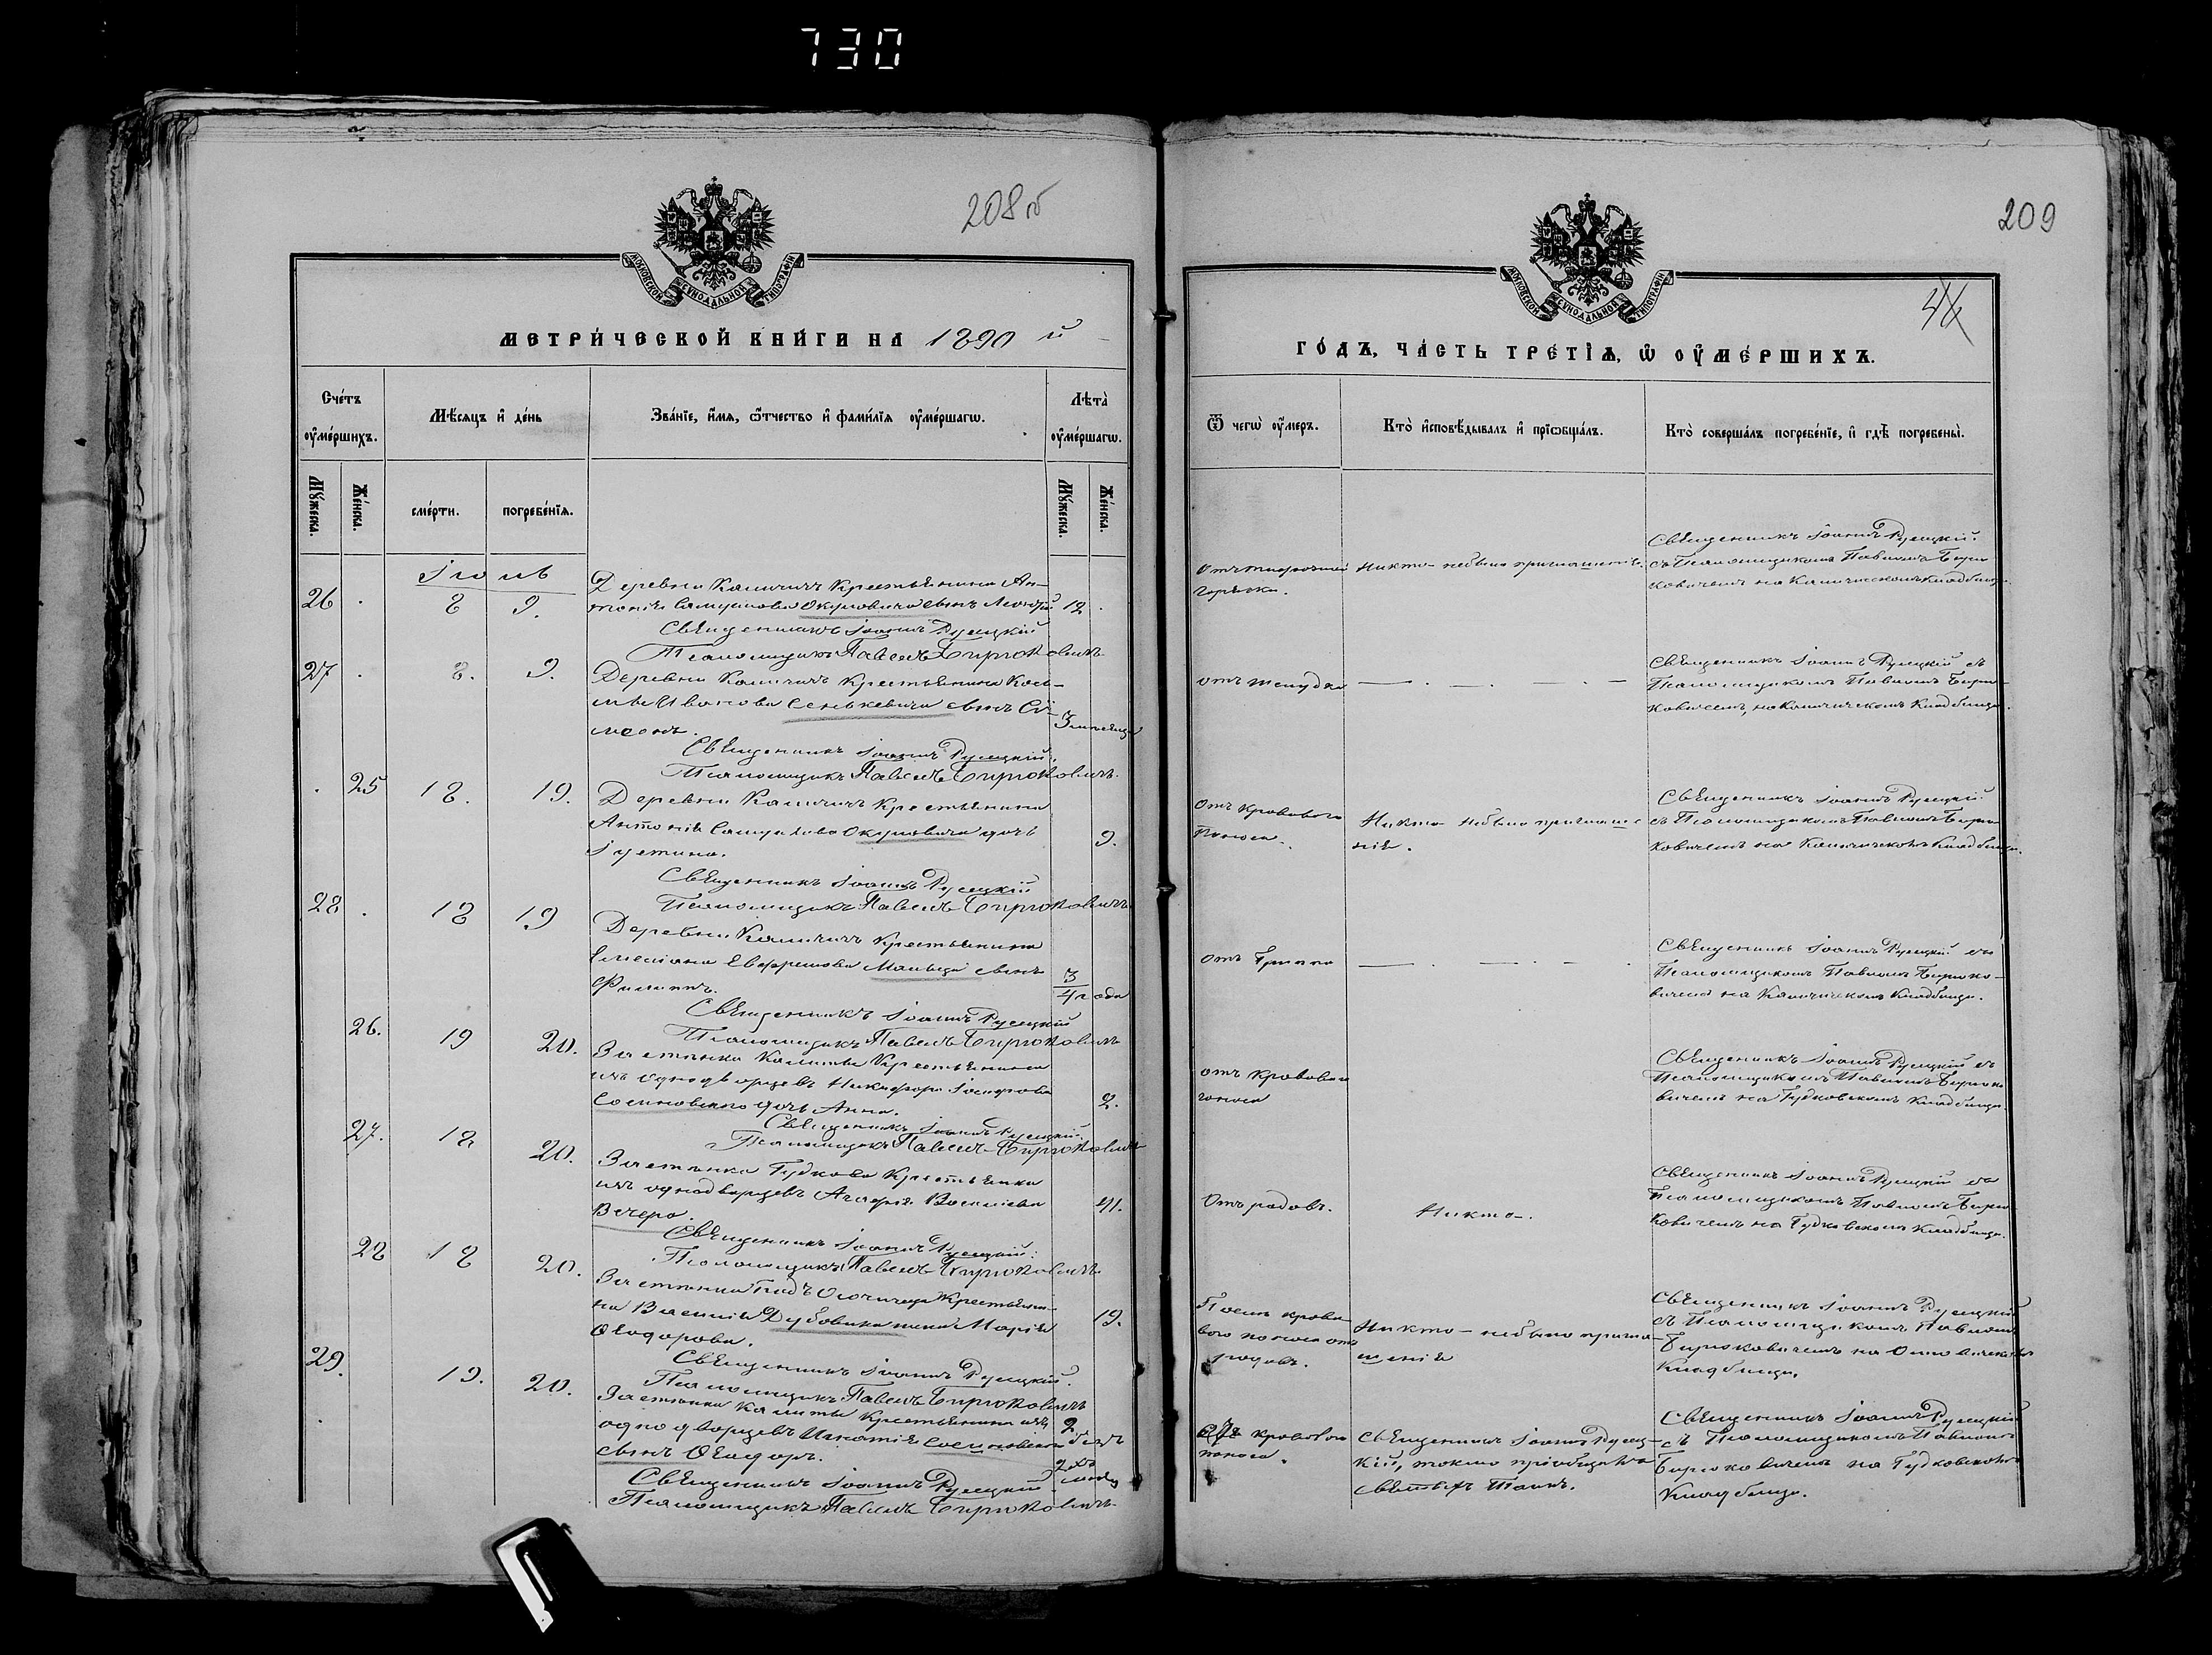 730
208 об
МОСКОВСКОЙ СѴНОДАЛЬНОЙ ТИПОГРАФІИ
МЕТРИ́ЧЕСКОЙ КНИ́ГИ НА 1890 й
Сче́тъ оу҆ме́ршихъ.
Мѣ́сяцъ и҆ де́нь
Зва́нїе, и҆́мя, ѻ҆́тчество и҆ фами́лїя оу҆ме́ршагѡ.
Лѣта̀ оу҆ме́ршагѡ.
Мꙋ́жеска.
Же́нска.
сме́рти.
погребе́нїя.
Мꙋ́жеска.
Же́нска.
Іюнь
26 . 8 9. Деревни Каличичъ крестьянина Ан-
тонія Самуилова Окуловича сынъ Леонтій 12 .
Священникъ Іоаннъ Русецкій
Псаломщикъ Павелъ Бирюковичъ
27 . 8. 9. Деревни Каличичъ крестьянина Кось-
мы Иванова Сенькевича сынъ Си-
меонъ. 3 месяца
Священникъ Іоаннъ Русецкій.
Псаломщикъ Павелъ Бирюковичъ.
. 25 18. 19. Деревни Каличичъ крестьянина
Антонія Самуилова Окуловича дочь
Іустина. 9.
Священникъ Іоаннъ Русецкій
Псаломщикъ Павелъ Бирюковичъ
28 . 18 19 Деревни Каличичъ крестьянина
Емеліана Ефремова сынъ
Филиппъ. 3/4 года
Священникъ Іоаннъ Русецкій
Псаломщикъ Павелъ Бирюковичъ
26. 19 20. Застѣнка Калиты крестьянина
изъ однодворцевъ Никифора Іосифова
Сосиновскаго дочь Анна. 2.
Священникъ Іоаннъ Русецкій.
Псаломщикъ Павелъ Бирюковичъ
27. 18 20. Застѣнка Гудково крестьянка
изъ однодворцевъ Агафія Василіева
Вачеро. 41.
Священникъ Іоаннъ Русецкій.
Псаломщикъ Павелъ Бирюковичъ
28 18 20. Застѣнка крестьяни-
на Василія Дубовика жена Марія
Ѳеодорова. 19.
Священникъ Іоаннъ Русецкій.
Псаломщикъ Павелъ Бирюковичъ
29. 19. 20. Застѣнка Калиты крестьянина изъ
однодворцевъ Игнатія Сосиновскаго
сынъ Ѳеодоръ. 2 безъ
Священникъ Іоаннъ Русецкій
Псаломщикъ Павелъ Бирюковичъ
209
МОСКОВСКОЙ СѴНОДАЛЬНОЙ ТИПОГРАФІИ
ГО́ДЪ, ЧА́СТЬ ТРЕ́ТІѦ, Ѡ҆ ОУ҆МЕ́РШИХЪ.
Ѿ чегѡ̀ оу҆́меръ.
Кто̀ и҆сповѣ́дывалъ и҆ прїѡбща́лъ.
Кто̀ соверша́лъ погребе́нїе, и҆ гдѣ̀ погребены̀.
Никто не было приглашенія.
Священникъ Іоаннъ Русецкій
съ Псаломщикомъ Павломъ Бирю-
ковичемъ на Каличичскомъ кладбище.
горячки.
отъ желудка
Священникъ Іоаннъ Русецкій съ
Псаломщикомъ Павломъ Бирю-
ковичемъ, на Каличичскомъ кладбище.
отъ кроваваго
поноса.
Никто не было приглаше-
нія.
Священникъ Іоаннъ Русецкій
съ Псаломщикомъ Павломъ Бирю-
ковичемъ на Каличичскомъ кладбище.
отъ Гриппа
Священникъ Іоаннъ Русецкій съ
Псаломщикомъ Павломъ Бирюко-
вичемъ на Каличичскомъ кладбище.
отъ кроваваго
поноса
Священникъ Іоаннъ Русецкій съ
Псаломщикомъ Павломъ Бирюко-
вичемъ на Гудковскомъ кладбище.
Отъ родовъ.
Никто.
Священникъ Іоаннъ Русецкій съ
Псаломщикомъ Павломъ Бирю-
ковичемъ на Гудковскомъ кладбище.
Послѣ крова-
ваго поноса отъ
родовъ.
Никто не было пригла-
шенія
Священникъ Іоаннъ Русецкій
съ Псаломщикомъ Павломъ
Бирюковичемъ на
кладбище.
отъ кроваваго
поноса.
Священникъ Іоаннъ Русец-
кій, токмо пріобщилъ
святыхъ Таинъ.
Священникъ Іоаннъ Русецкій
съ Псаломщикомъ Павломъ
Бирюковичемъ на Гудковскомъ
кладбище.